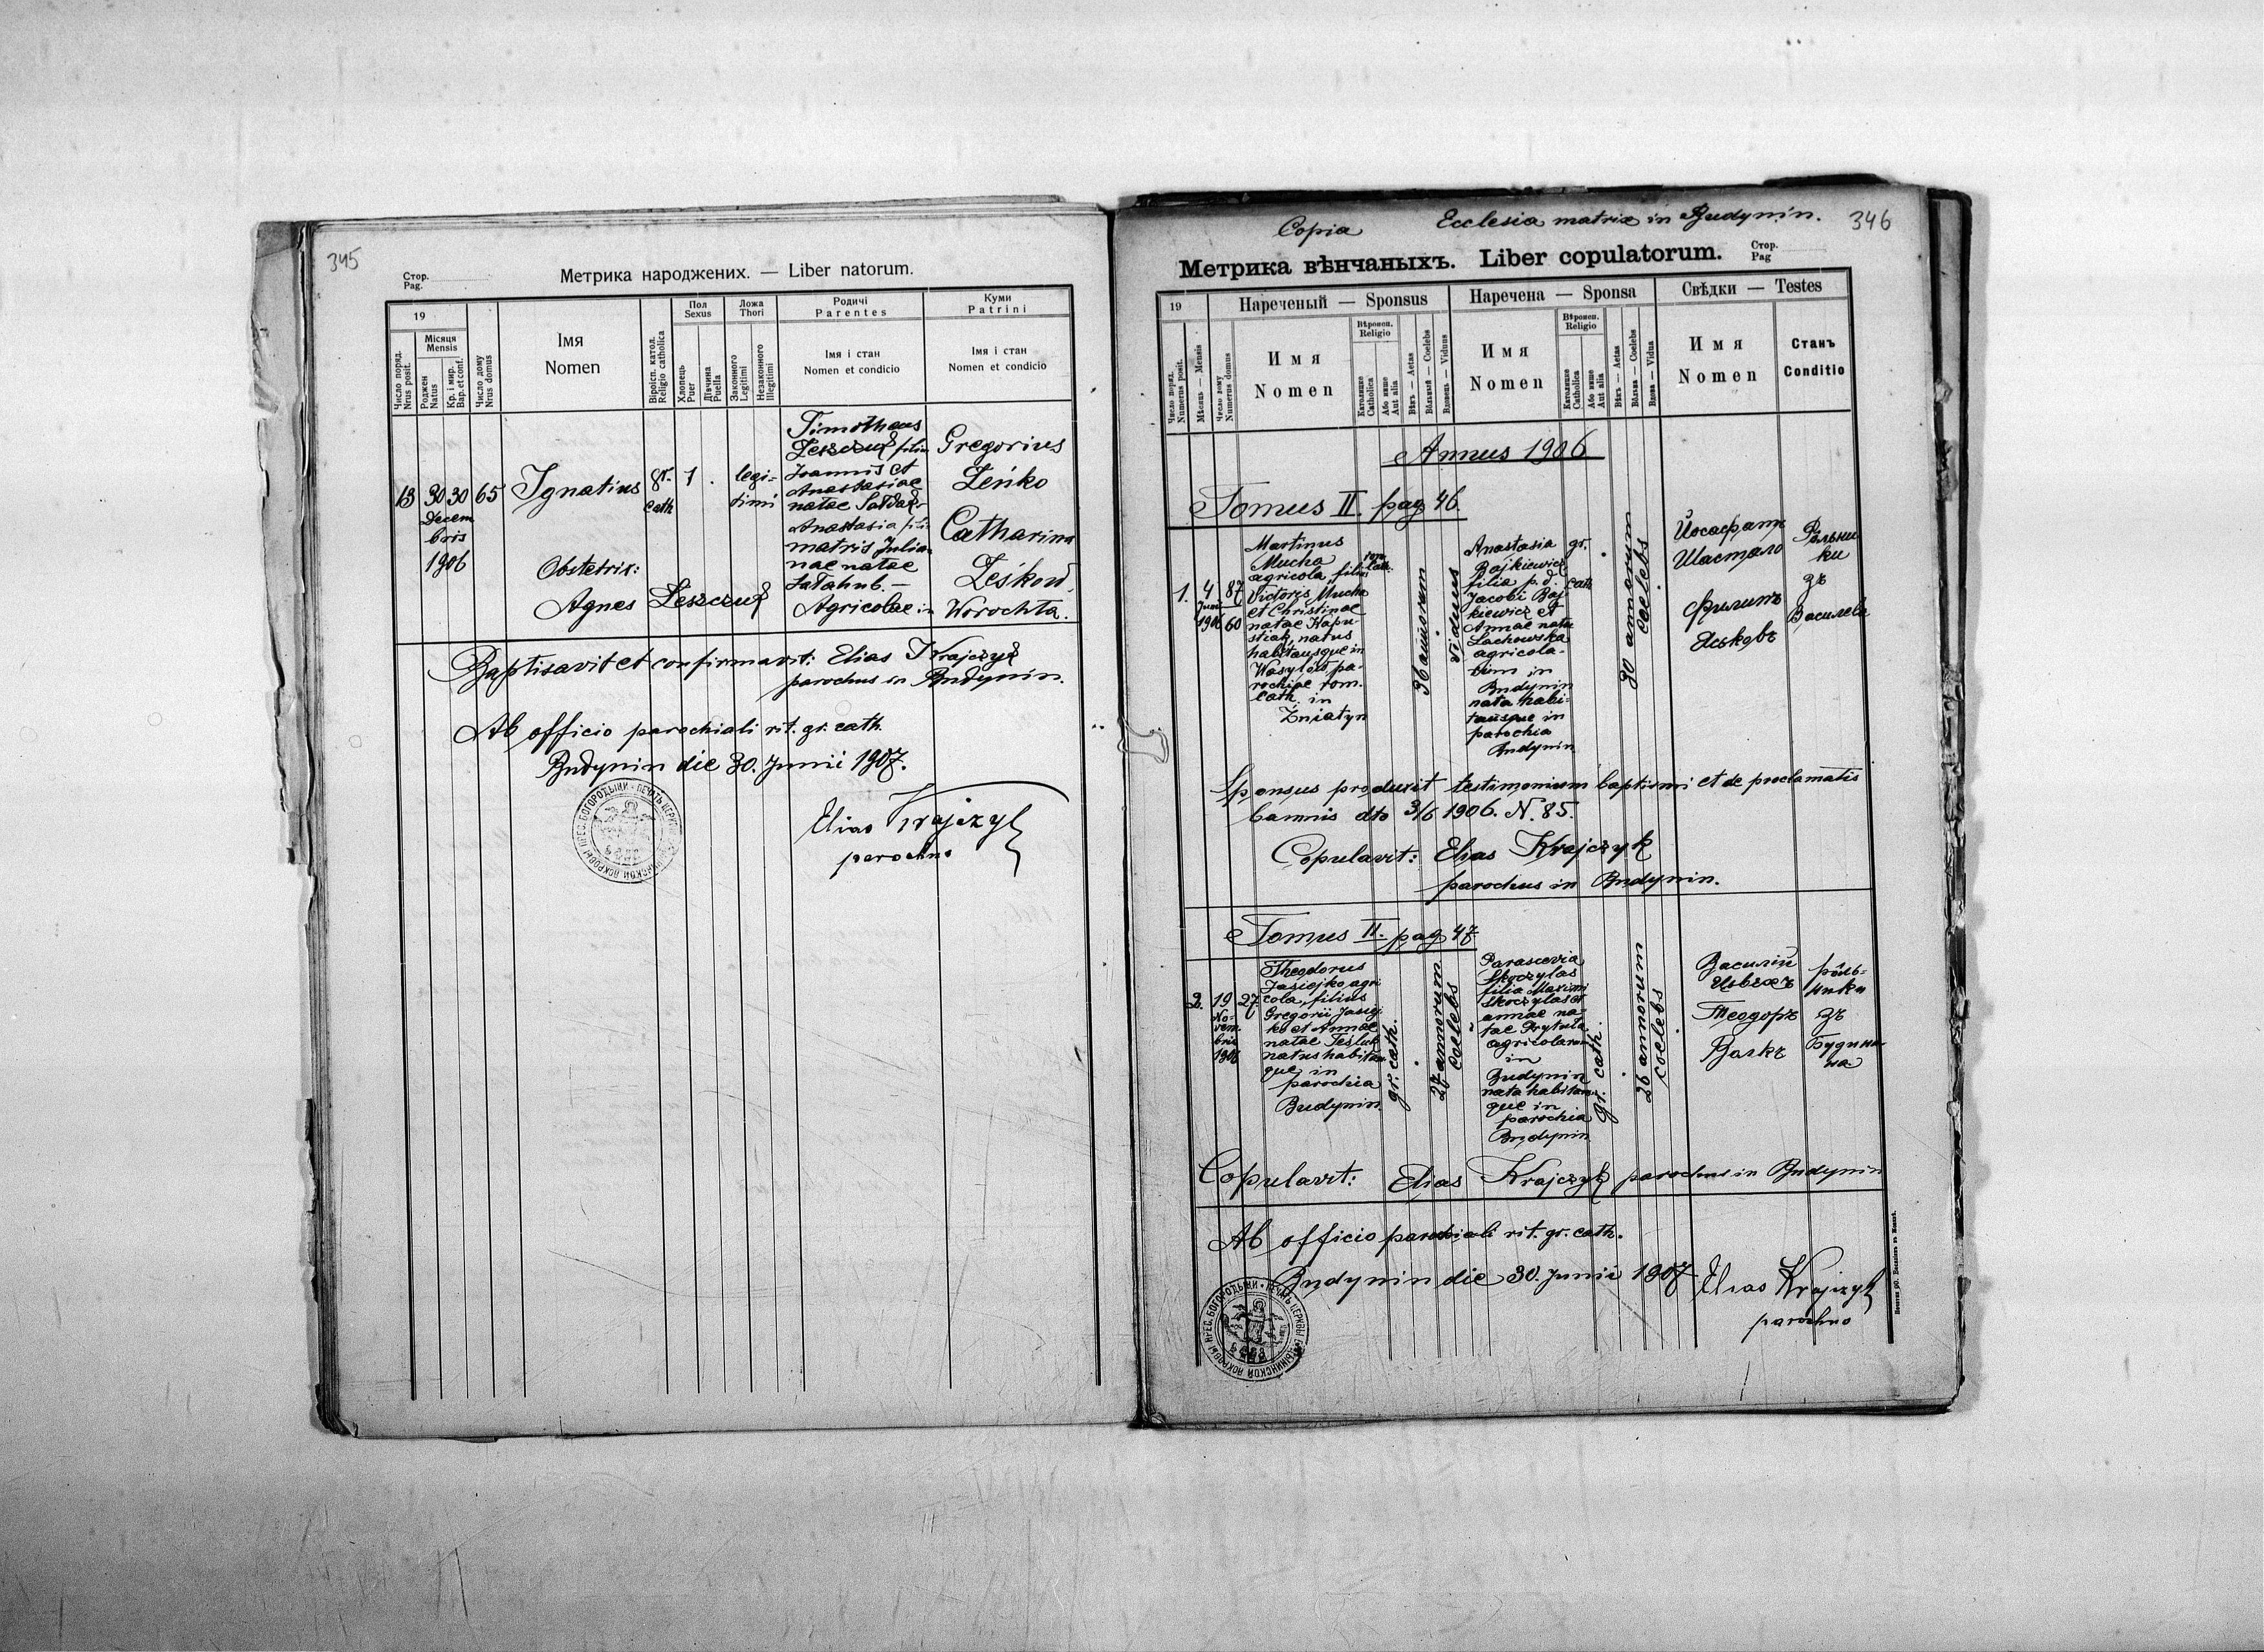 345
Стор.
Pag.
Метрика народжених. — Liber natorum.
19
Місяця
Mensis
Число поряд.
Nrus posit.
Роджен
Natus
Кр. і мир.
Bap. et conf.
Число дому
Nrus domus
Імя
Nomen
Віроісп. катол.
Religio catholica
Пол
Sexus
Хлопець
Puer
Дївчина
Puella
Ложа
Thori
Законного
Legitimi
Незаконного
Illegitimi
Родичі
Parentes
Імя і стан
Nomen et condicio
Куми
Patrini
Імя і стан
Nomen et condicio
13
30 30
Decem
bris
1906
65
Ignatius
gr.
cath
1 .
legi=
timi
Timotheus
Leszczuk filius
Joannis et
Anastasiae
natae
Anastasia
matris Julia-
nae natae
Agricolae in
Gregorius
Zeńko
Catharina
Leśkow
Worochta.
Obstetrix:
Agnes Leszczuk
Baptisavit et confirmavit: Elias Krajczyk
parochus in Budynin.
Ab officio parochiali rit. gr. cath.
Budynin die 30. Junii 1907.
Elias Krajczyk
parochus
Copia Ecclesia matrix in Budynin. 346
Метрика вѣнчаныхъ. Liber copulatorum.
Стор.
Pag
19
Нареченый — Sponsus
Наречена — Sponsa
Свѣдки — Testes
Число поряд.
Numerus posit.
Мѣсяць — Mensis
Число дому
Numerus domus
Имя
Nomen
Вѣроисп.
Religio
Католицке
Catholica
Або инше
Aut alia
Вѣкъ — Aetas
Вѣльный — Coelebs
Вдовець — Viduus
Имя
Nomen
Вѣроисп.
Religio
Католицке
Catholica
Або инше
Aut alia
Вѣкъ — Aetas
Вѣльна — Coelebs
Вдова — Vidua
Имя
Nomen
Станъ
Conditio
Annus 1906
Tomus II. pag 46.
1.
4
Junii
1906
87
60
Martinus
Mucha
agricola, filius
Victoris Mucha
et Christinae
natae Kapu-
stiak, natus
habitansque in
Wasylów pa-
rochiae rom.
cath. in
Zniatyn
rom.
cath.
36 annorum
viduus
Anastasia
Bajkiewicz
filia p. d.
Jacobi Baj-
kiewicz et
Annae natae
Lachowska
agricola-
rum in
Budynin
nata habi-
tansque in
parochia
Budynin
gr.
cath
30 annorum
coelebs
Йосафатъ
Шастало
Филипъ
Яськовъ
Рѣльни
ки
зъ
Василева
Sponsus produxit testimonium baptismi et de proclamatis
bannis dto 3/6 1906. N. 85.
Copulavit: Elias Krajczyk
parochus in Budynin.
Tomus II. pag 47
2.
19
No-
vem-
bris
1906
27
Theodorus
Jasiejko, agri
cola, filius
Gregorii Jasiej
ko et Annae
natae Tesluk
natus habitans
que in
parochia
Budynin
gr. cath.
27 annorum
coelebs
Parascevia
Skoczylas
filia Maximi
Skoczylas et
Annae na-
tae Prytula
agricolarum
in
Budynin
nata habitans
que in
parochia
Budynin
gr. cath.
26 annorum
coelebs
Василій
Теодоръ
Валкъ
рôль-
ники
зъ
Будини-
на
Copulavit: Elias Krajczyk parochus in Budynin
Ab officio parochiali rit. gr. cath.
Budynin die 30. Junii 1907
Elias Krajczyk
parochus